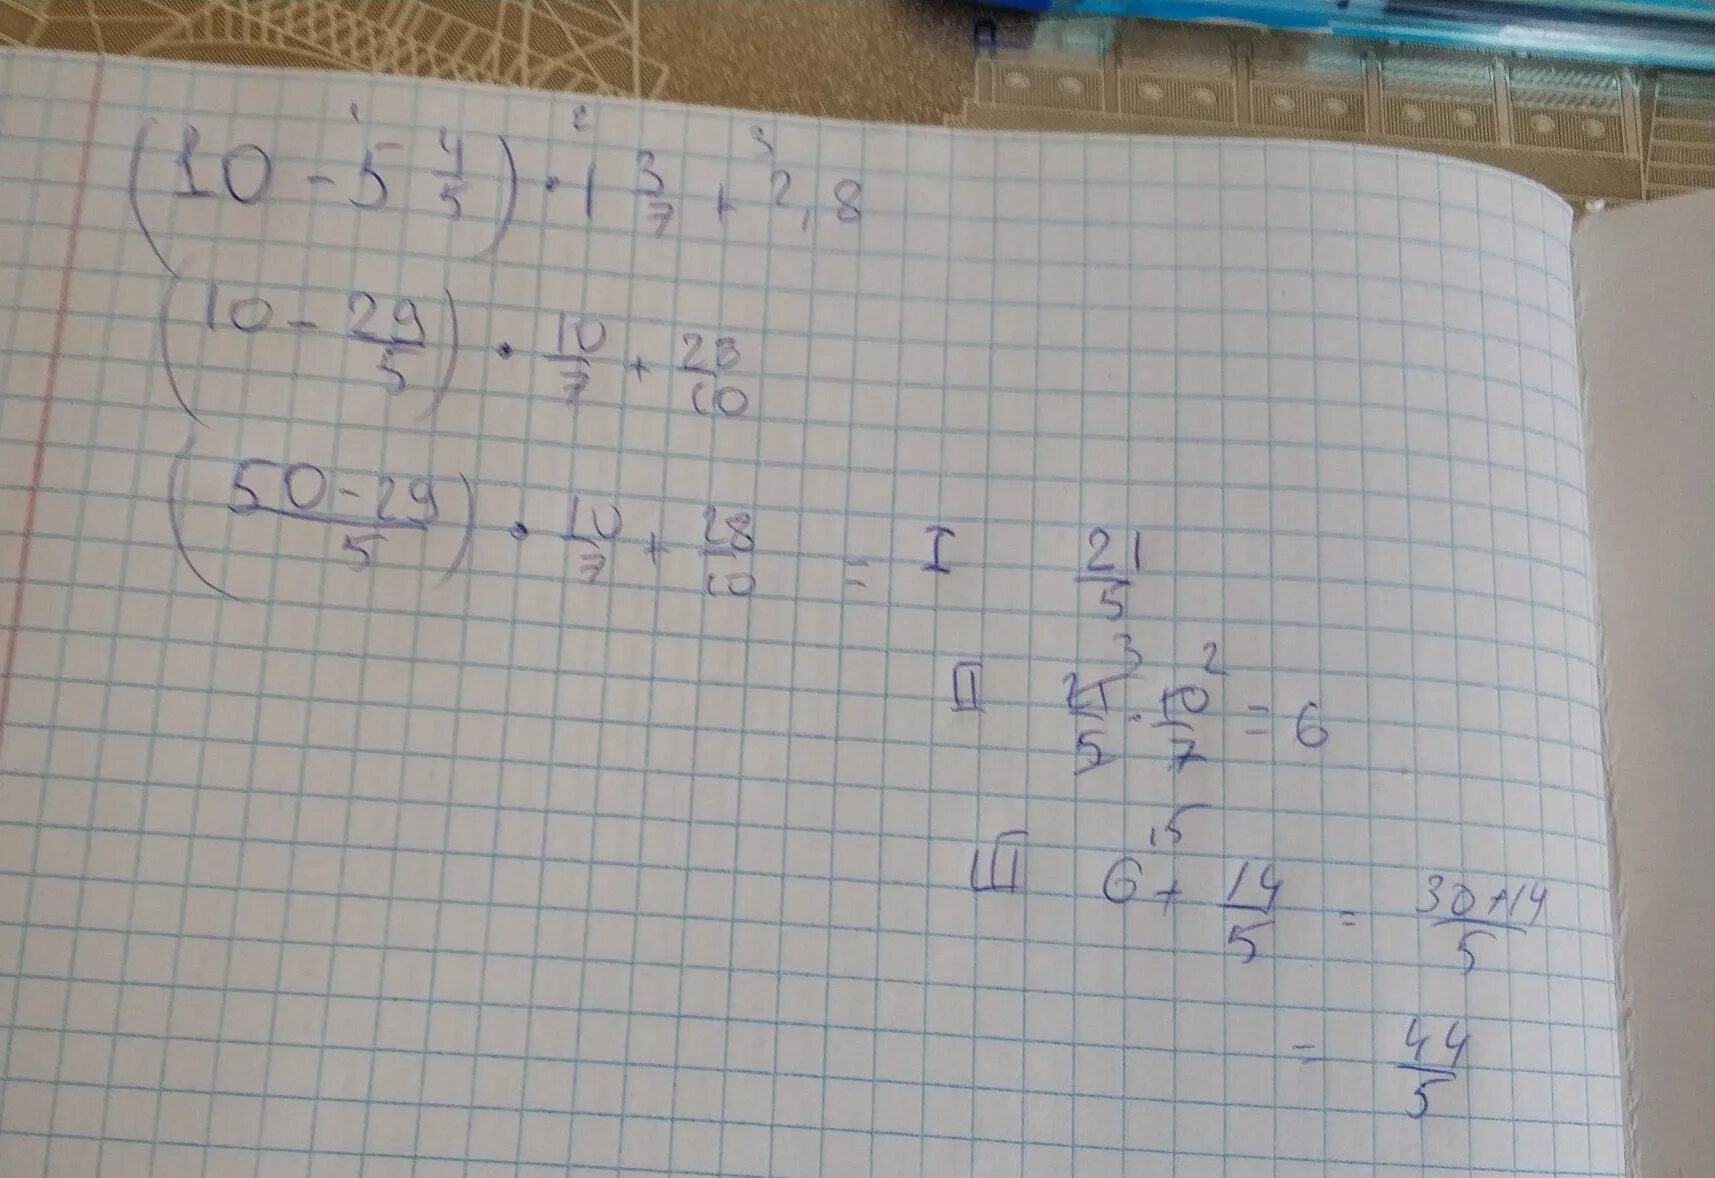 1 2 3
(10 - 5 4/5) · 1 3/7 + 2,8
(10 - 29/5) · 10/7 + 28/10
(50-29/5) · 10/7 + 28/10 = I 21/5
II 21/5 · 10/7 = 6
3 2
III 6 + 14/5 = 30+14/5
5
= 44/5